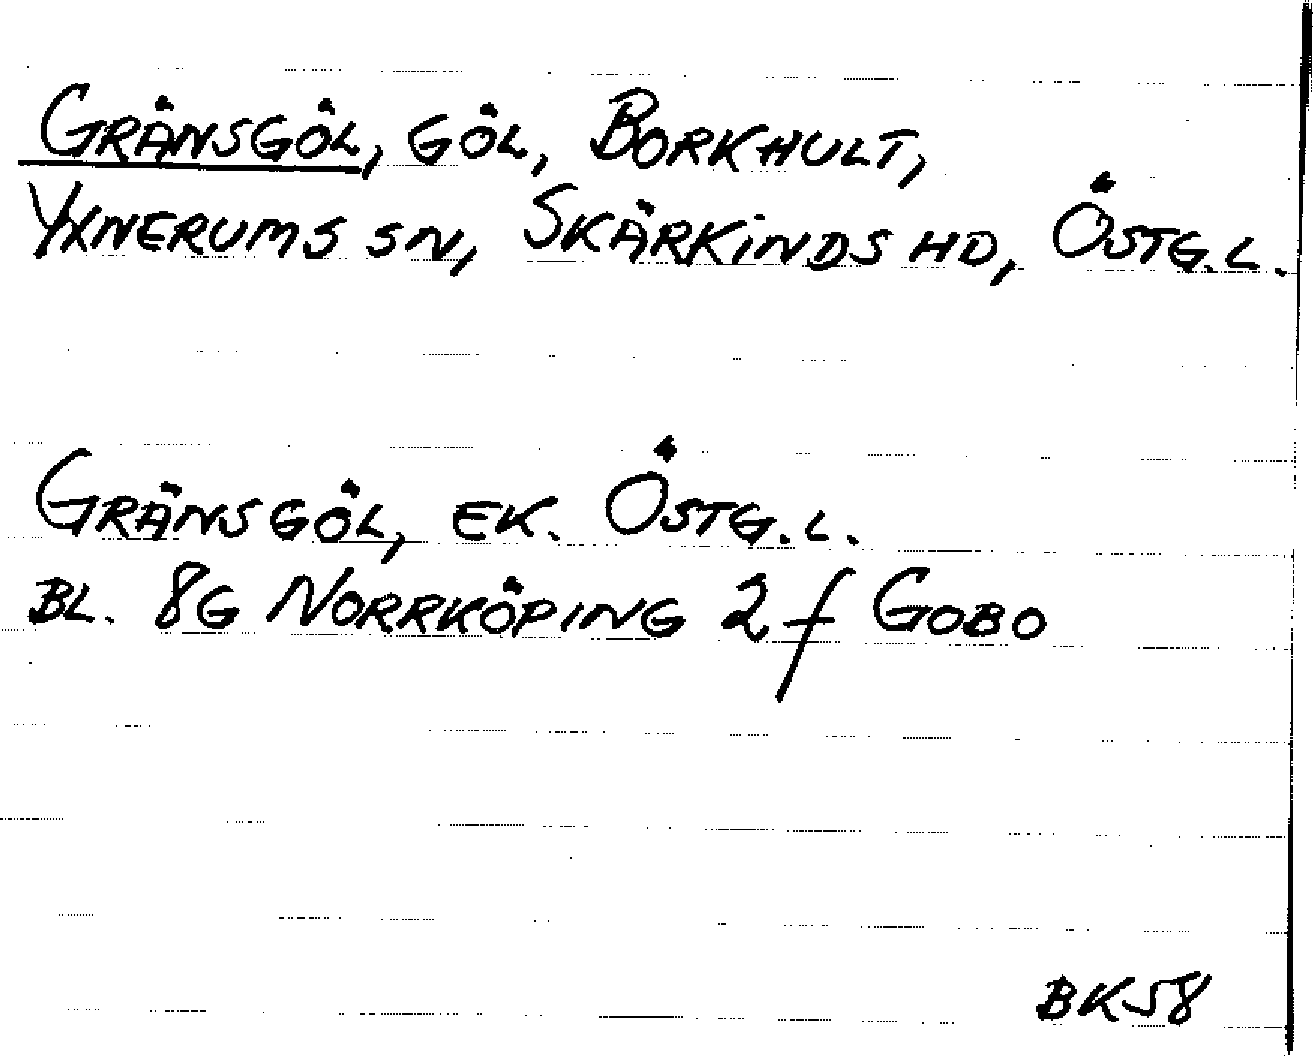 GRÄNSGÖL, GÖL, BORKHULT,
YXNERUMS SN, SKÄRKINDS HD, ÖSTG.L.
GRÄNSGÖL, EK. ÖSTG.L.
BL. 8G NORRKÖPING 2f GOBO
BK58